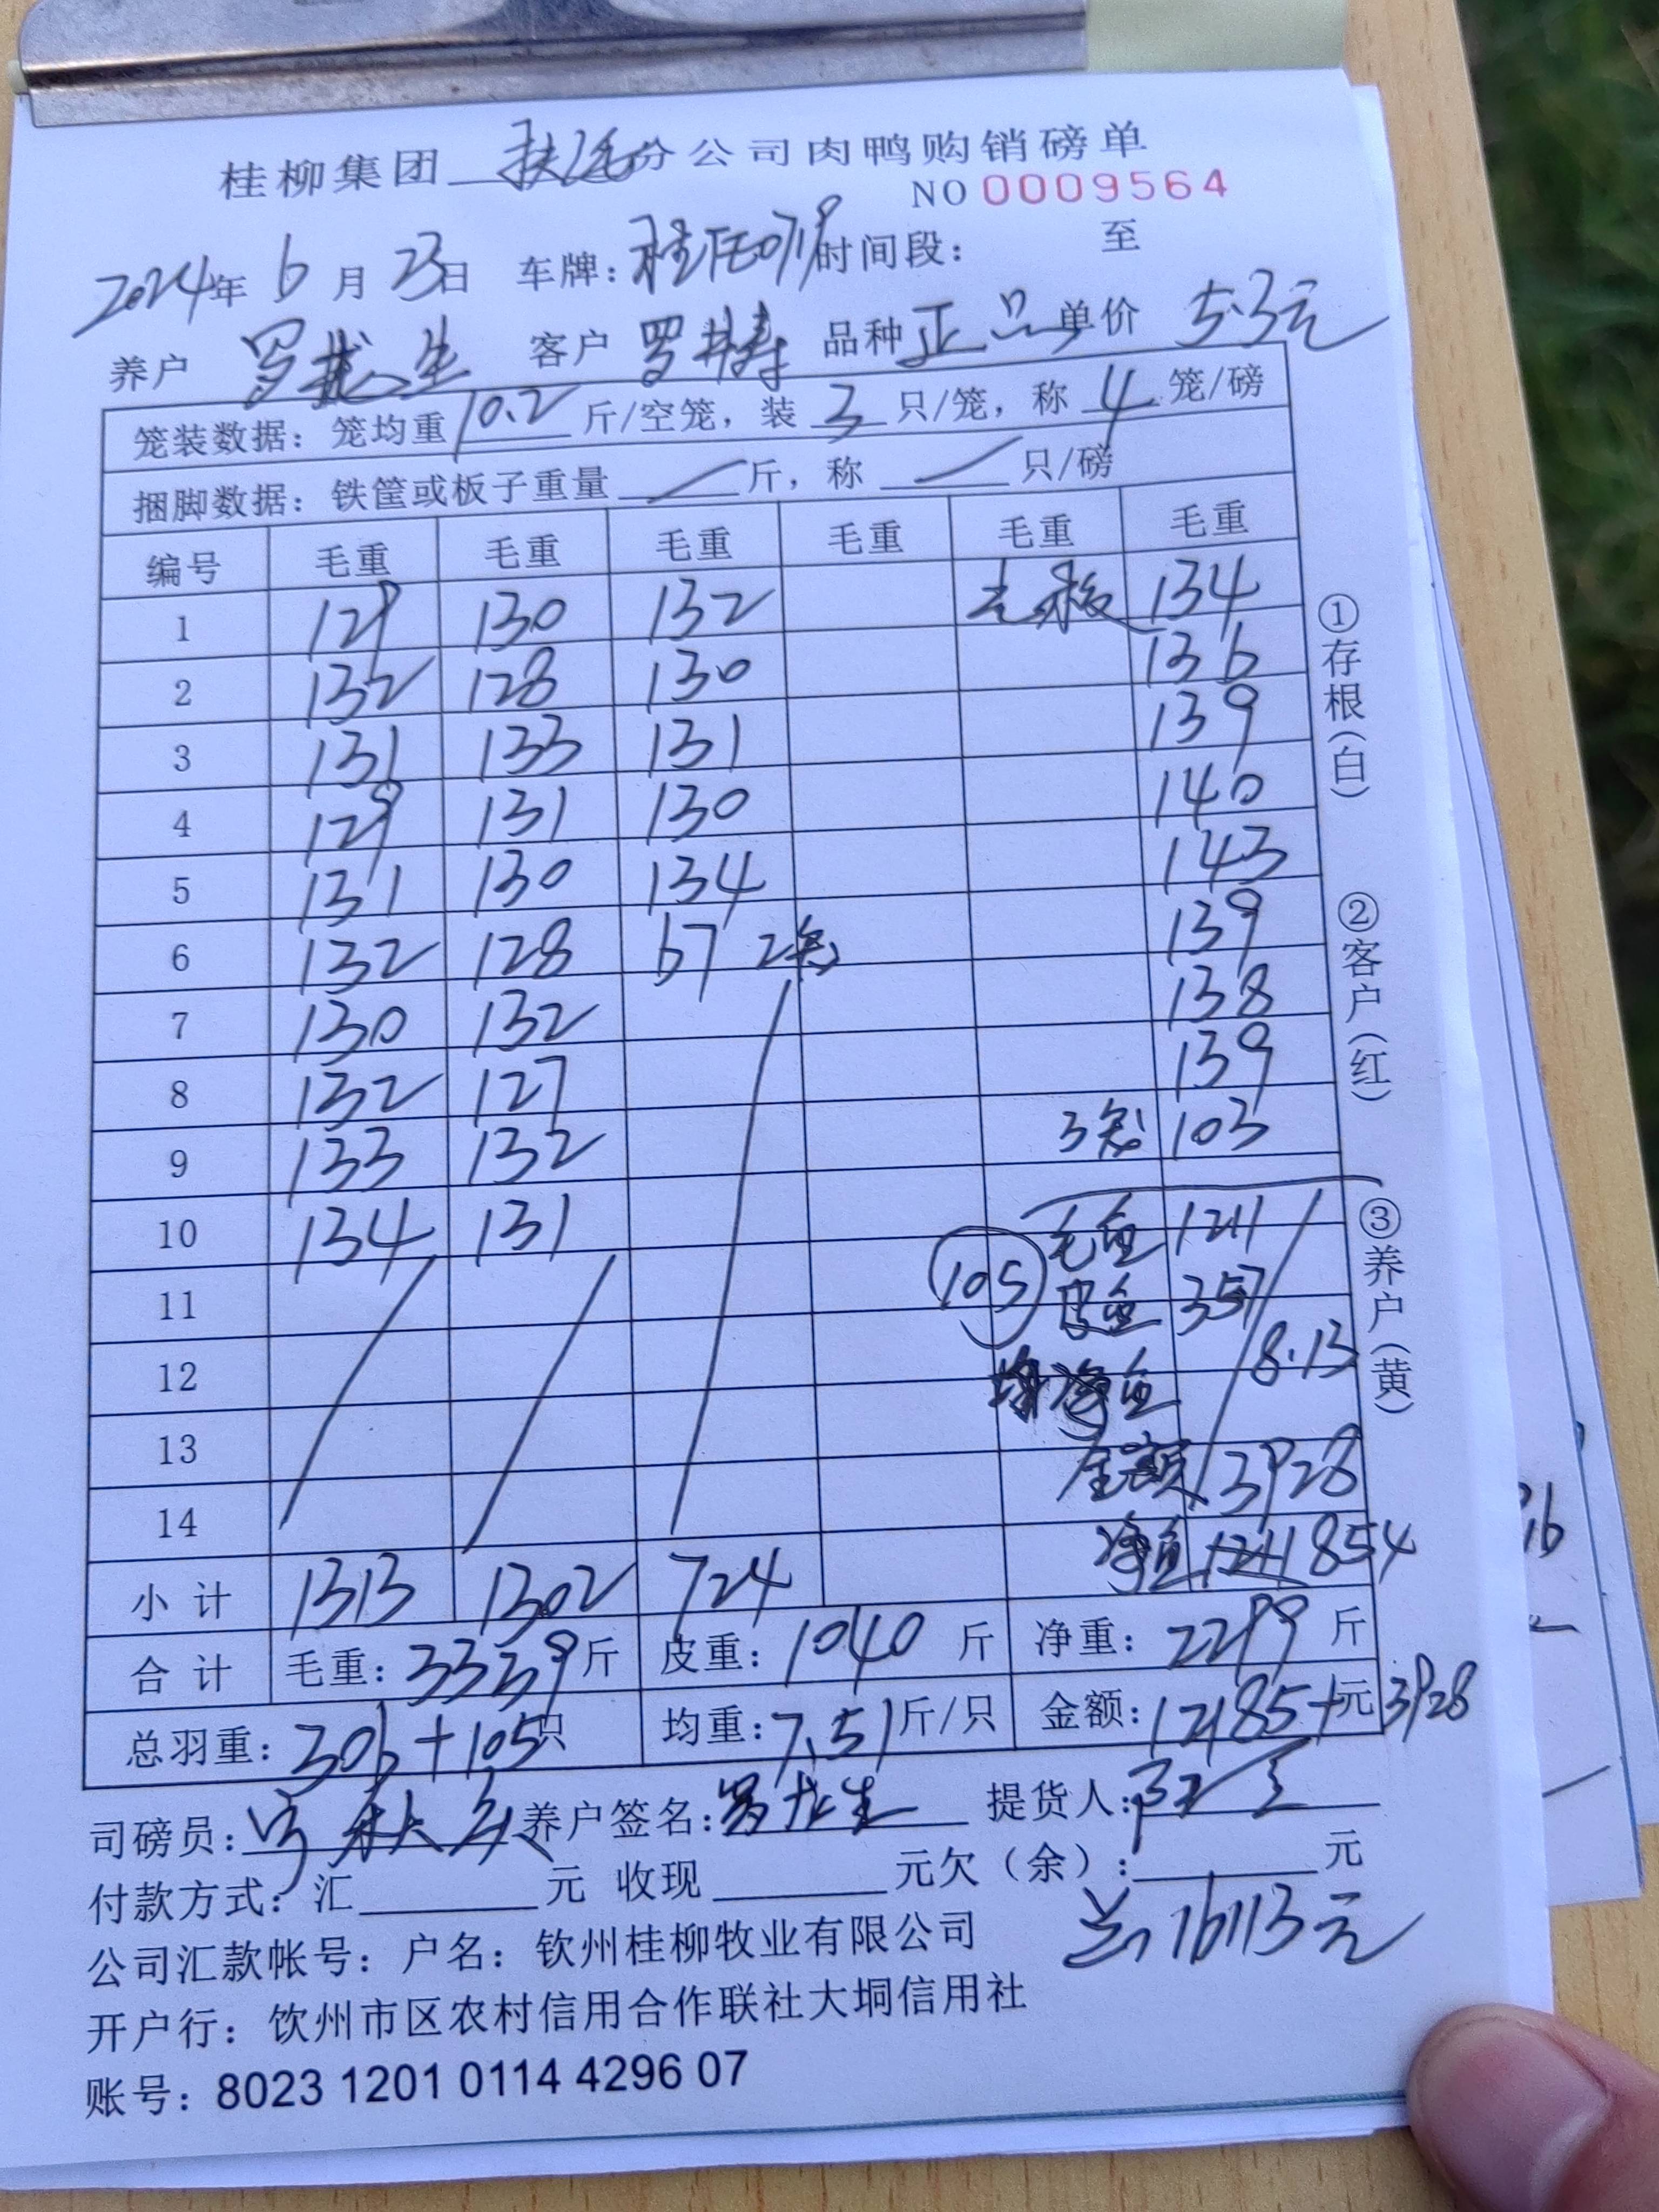 桂柳集团 分公司肉鸭购销磅单
NO 0009564
2024年 6 月 23日 车牌： 时间段： 至
养户 罗 生 客户 罗 品种 正品 单价 5.3元
笼装数据：笼均重 10.2 斤/空笼，装 3 只/笼，称 4 笼/磅
捆脚数据：铁筐或板子重量 / 斤，称 / 只/磅
编号 毛重 毛重 毛重 毛重 毛重 毛重
1 129 130 132 134
2 132 128 130 136
3 131 133 131 139
4 129 131 130 140
5 131 130 134 143
6 132 128 67 2笼 139
7 130 132 138
8 132 127 139
9 133 132 3笼 103
10 134 131 毛重 1211
11 105 皮重 357
12 均净重 8.13
13 金额 3928
14 净重 1211 854
小计 1313 1302 724
合计 毛重：3339斤 皮重：1040 斤 净重：2299 斤
总羽重：306+105只 均重：7.51斤/只 金额：12185+元 3928
司磅员： 养户签名：罗 生 提货人：
付款方式：汇 元 收现 元欠（余）： 元
总16113元
公司汇款帐号：户名：钦州桂柳牧业有限公司
开户行：饮州市区农村信用合作联社大垌信用社
账号：8023 1201 0114 4296 07
①存根（白）
②客户（红）
③养户（黄）